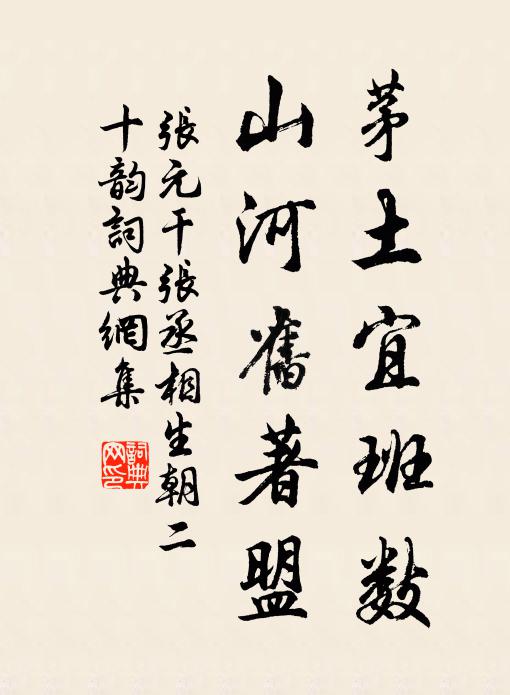 茅土宜班數
山河舊著盟
張元干張丞相生朝二
十韵詞典網集
詞典
网印